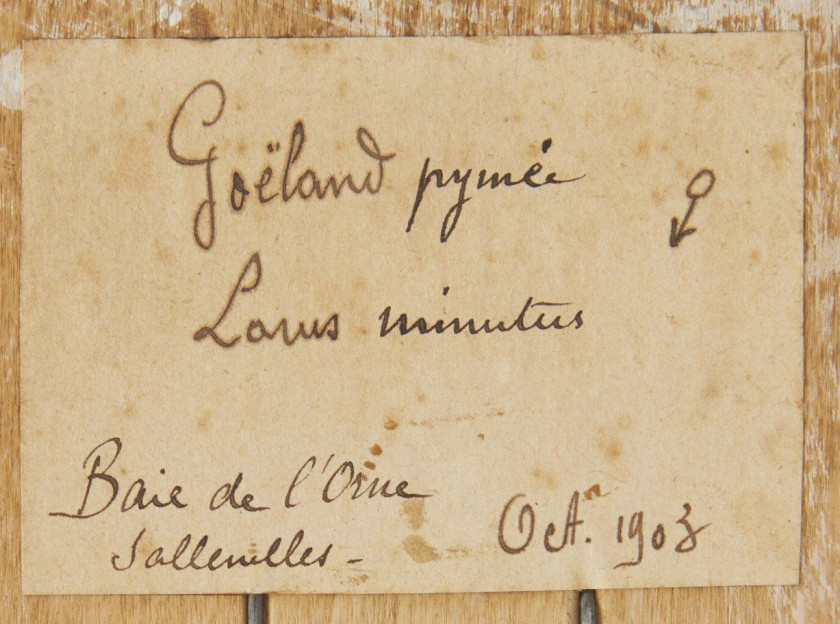 Goëland pymée ♂
Larus minutus
Baie de l'Orne
Sallenelles -
Oct. 1903